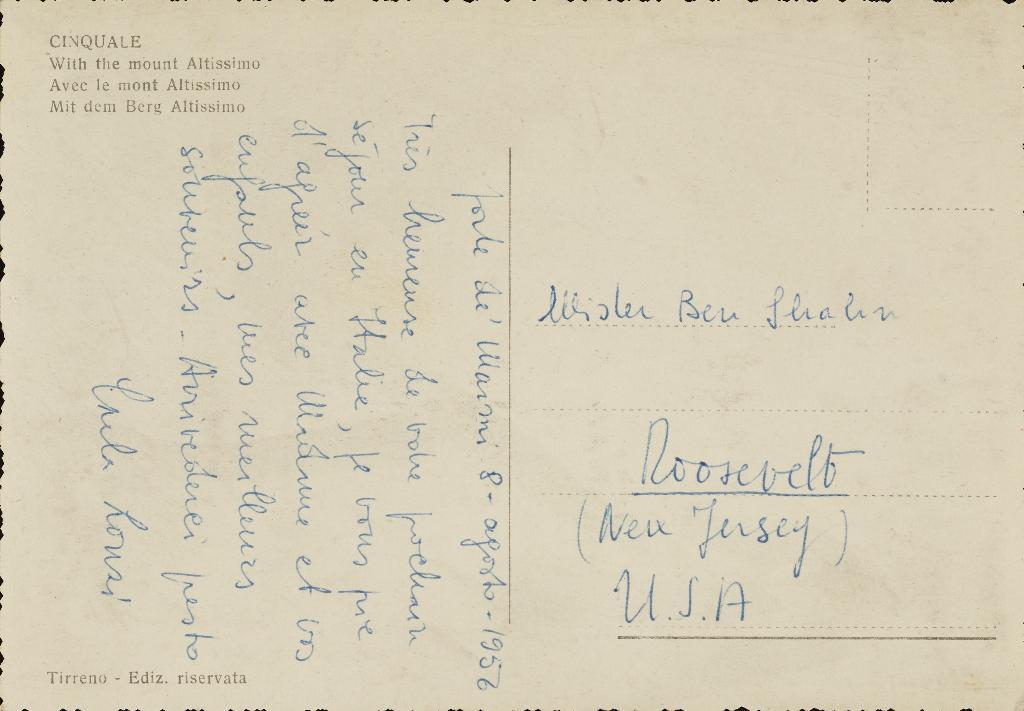 CINQUALE
With the mount Altissimo
Avec le mont Altissimo
Mit dem Berg Altissimo
forte dei Marmi 8 - agosto - 1956
Très heureuse de votre prochain
séjour en Italie, je vous prie
d'agréér avec Madame et vos
enfants, mes meilleurs
souvenirs - Arrivederci presto
Mister Ben Shahn
Roosevelt
(New Jersey)
U.S.A
Tirreno - Ediz. riservata